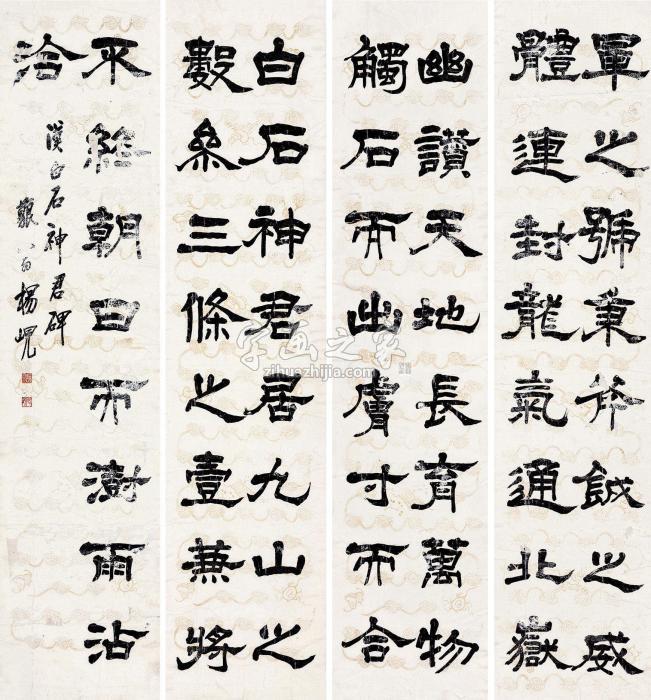 軍之號秉斧鉞之威
體連封龍氣通北嶽
幽讚天地長育萬物
觸石而出膚寸而合
白石神君居九山之
數參三條之壹兼將
不終朝日而澍雨沾
洽
漢白石神君碑
藐翁楊峴
字画之家
zihuazhijia.com